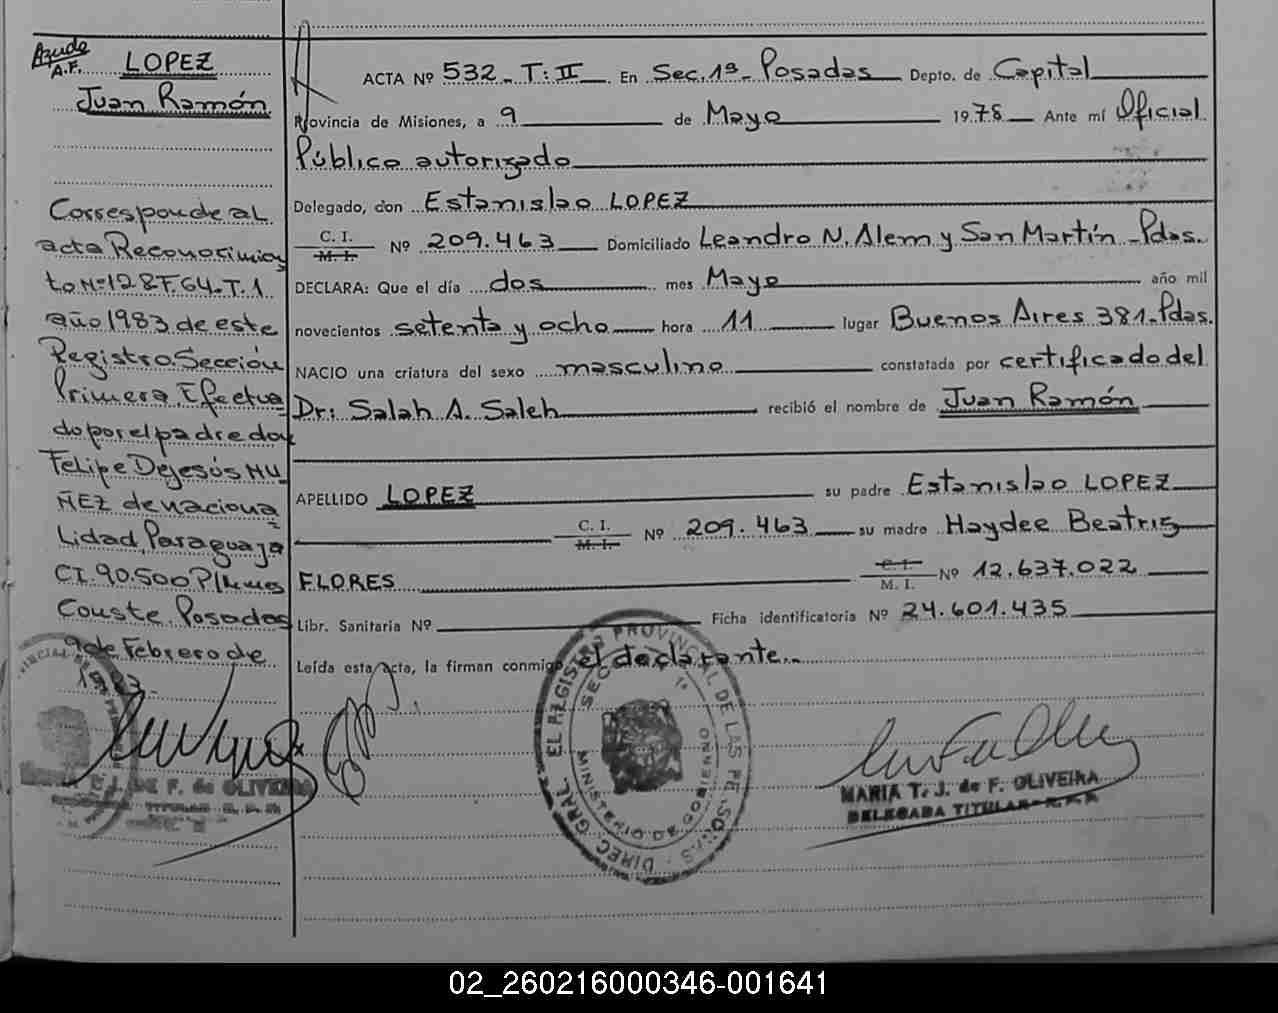 Ayude
A.F. LOPEZ
Juan Ramón
Corresponde al
acta Reconocimien
to Nº 128 F.64-T.1
año 1983 de este
Registro Sección
Primera, Efectua
do por el padre don
Felipe Dejesús NU
ÑEZ de naciona
Lidad, Paraguaya
CI. 90.500
Conste, Posadas
9 de Febrero de
ACTA Nº 532 - T: II En Sec. 1ª - Posadas Depto. de Capital
Provincia de Misiones, a 9 de Mayo 1978 Ante mí Oficial
Público autorizado
Delegado, don Estanislao LOPEZ
C. I. M. I. Nº 209.463 Domiciliado Leandro N. Alem y San Martín - Pdas.
DECLARA: Que el día dos mes Mayo año mil
novecientos setenta y ocho hora 11 lugar Buenos Aires 381-Pdas.
NACIO una criatura del sexo masculino constatada por certificado del
Dr: Salah A. Saleh recibió el nombre de Juan Ramón
APELLIDO LOPEZ su padre Estanislao LOPEZ
C. I. M. I. Nº 209.463 su madre Haydee Beatriz
FLORES C. I. M. I. Nº 12.637.022
Libr. Sanitaria Nº Ficha identificatoria Nº 24.601.435
Leída esta acta, la firman conmigo el declarante.-
DIREC. GRAL. EL REGISTRO PROVINCIAL DE LAS PERSONAS
MINISTERIO DE GOBIERNO
MARIA T. J. de F. OLIVEIRA
DELEGADA TITULAR
DE F. de OLIVEIRA
02_260216000346-001641